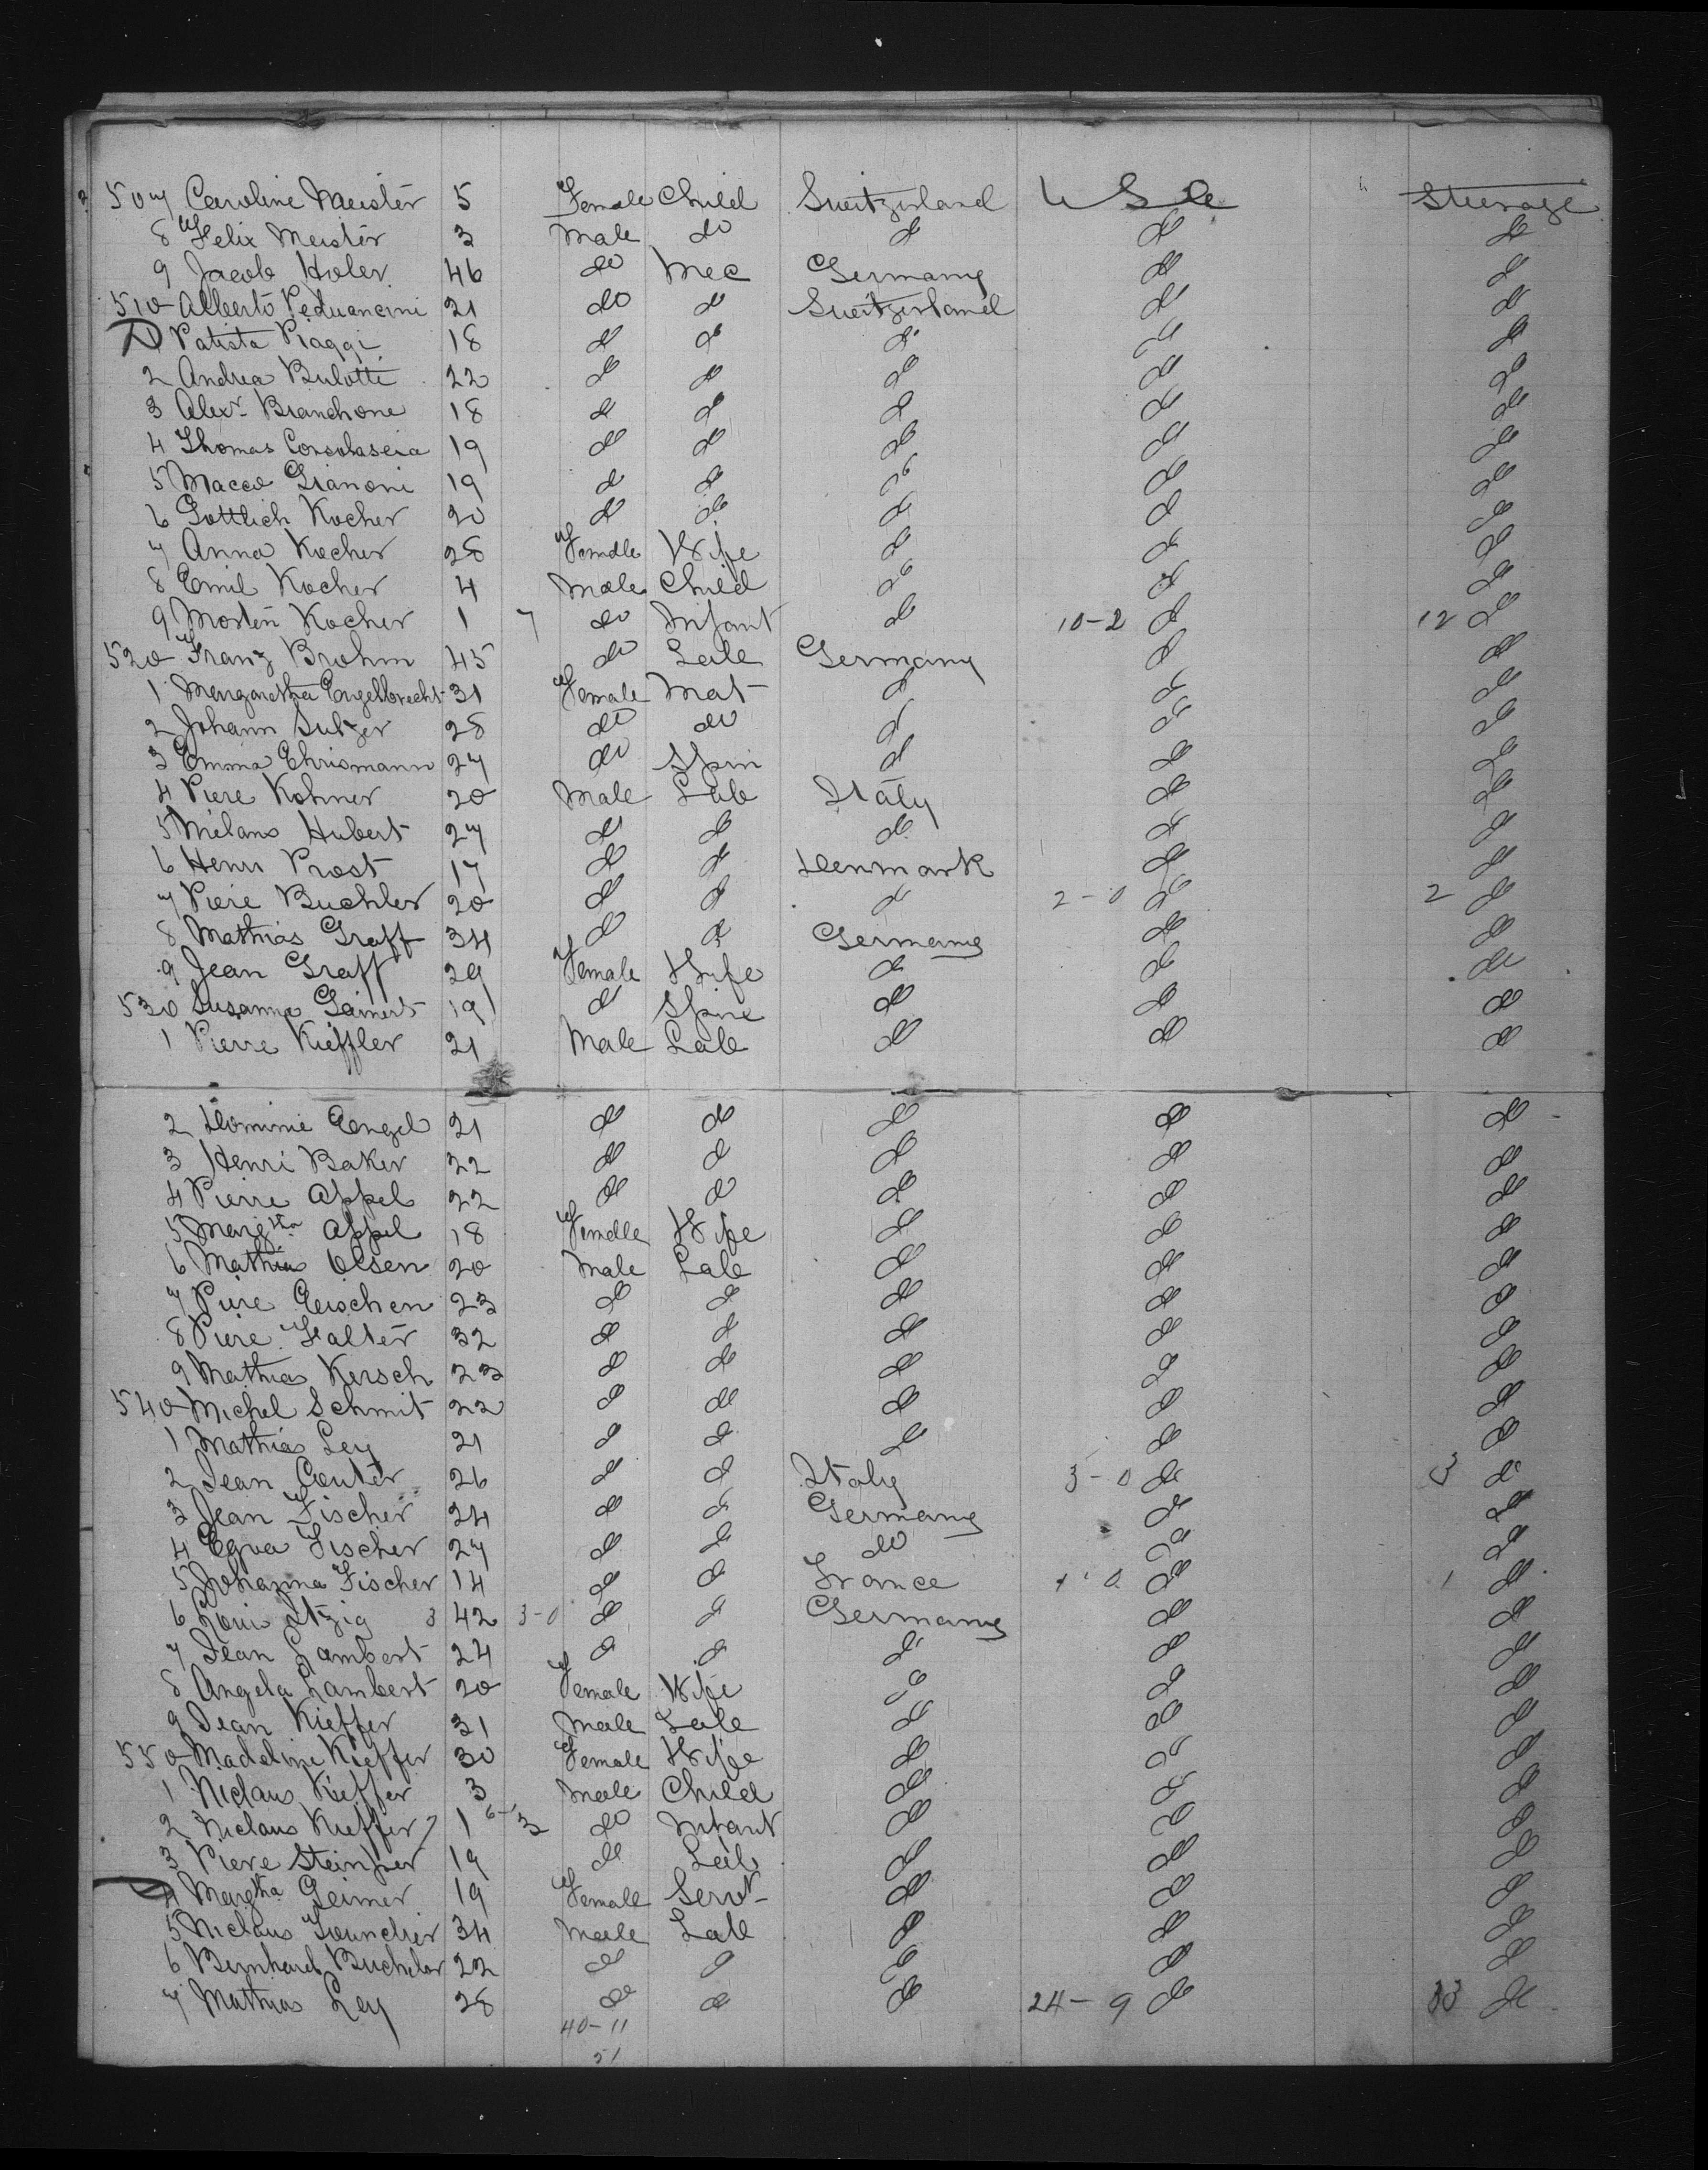 507 Caroline Meister 5 Female Child Switzerland U S A Steerage
8 Felix Meister 3 Male do do do do
9 Jacob Holer 46 do Mec Germany do do
510 Alberto Peduancini 21 do do Switzerland do do
Patista Piaggi 18 do do do do do
2 Andrea Bulotti 22 do do do do do
3 Alexr Branchone 18 do do do do do
4 Thomas 19 do do do do do
5 Macco Gianoni 19 do do do do do
6 Gottlich Kocher 20 do do do do do
7 Anna Kocher 28 Female Wife do do do
8 Emil Kocher 4 Male Child do do do
9 Mortin Kocher 1 7 do Infant do 10-2 do 12 do
520 Franz Brohm 45 do Lab Germany do do
1 Margaretha Engelbrecht 31 Female Mat do do do
2 Johann Sulzer 28 do do do do do
3 Emma Chrismann 27 do Spin do do do
4 Piere Kohner 20 Male Lab Italy do do
5 Milano Hubert 27 do do do do do
6 Henri Prost 17 do do Denmark do do
7 Piere Buchler 20 do do do 2-0 do 2 do
8 Mathias Graff 34 do do Germany do do
9 Jean Graff 29 Female Wife do do do
530 Susanna Gainert 19 do Spin do do do
1 Pierre Kieffler 21 Male Lab do do do
2 Dominie Engel 21 do do do do do
3 Henri Baker 22 do do do do do
4 Pierre Appel 22 do do do do do
5 Margtha Appel 18 Female Wife do do do
6 Mathias Olsen 20 Male Lab do do do
7 Piere Geischen 23 do do do do do
8 Piere Falter 32 do do do do do
9 Mathias Kersch 23 do do do do do
540 Michel Schmit 22 do do do do do
1 Mathias Ley 21 do do do do do
2 Jean Couter 26 do do Italy 3-0 do 3 do
3 Jean Fischer 24 do do Germany do do
4 Egva Fischer 27 do do do do do
5 Johanna Fischer 14 do do France 1-0 do 1 do
6 Itzig 3 42 3-0 do do Germany do do
7 Jean Lambert 24 do do do do do
8 Angela Lambert 20 Female Wife do do do
9 Jean Kieffer 31 Male Lab do do do
550 Madeline Kieffer 30 Female Wife do do do
1 Niclaus Kieffer 3 Male Child do do do
2 Niclaus Kieffer 1 do Infant do do do
3 Piere Steinper 19 do Lab do do do
4 Margtha Geimer 19 Female Servt do do do
5 Niclaus 34 Male Lab do do do
6 Bernhard Buchelar 22 do do do do do
7 Mathias Ley 28 do do do 24-9 do 33 do
40-11
51